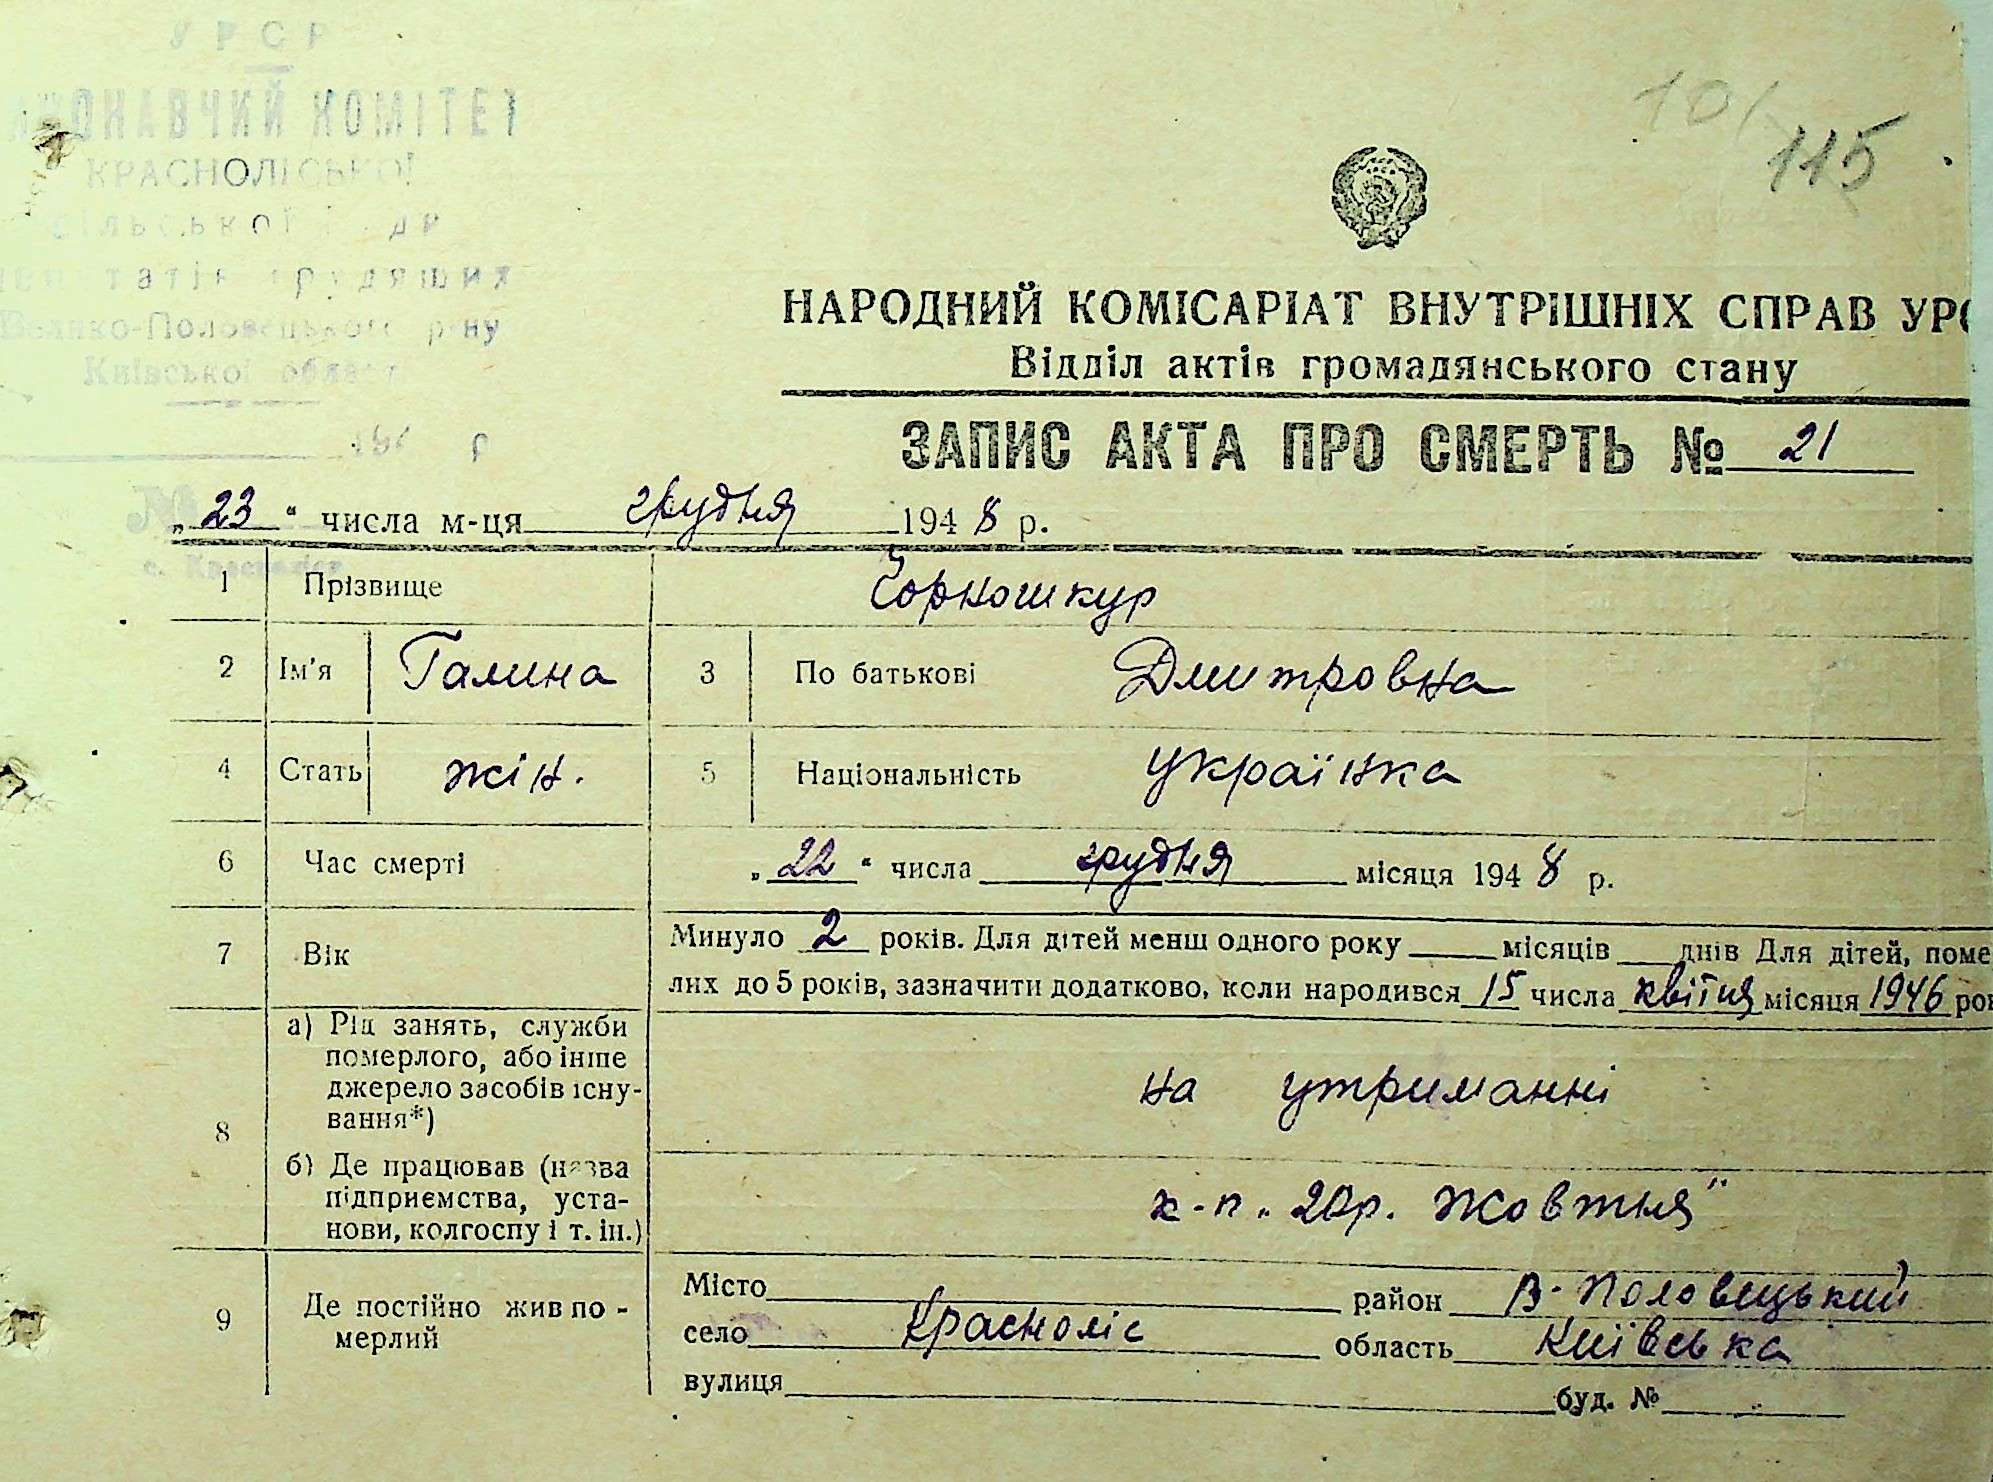 УРСР
КОМІТЕТ
КРАСНОЛІСЬКОЇ
Велико-Половецького р-ну
Київської
115
НАРОДНИЙ КОМІСАРІАТ ВНУТРІШНІХ СПРАВ УРС
Відділ актів громадянського стану
ЗАПИС АКТА ПРО СМЕРТЬ № 21
„23“ числа м-ця грудня 1948 р.
1 Прізвище Чорношкур
2 Ім'я Галина 3 По батькові Дмитровна
4 Стать жін. 5 Національність українка
6 Час смерті „22“ числа грудня місяця 1948 р.
7 Вік Минуло 2 років. Для дітей менш одного року місяців днів Для дітей, поме
лих до 5 років, зазначити додатково, коли народився 15 числа квітня місяця 1946 рок
8 а) Рід занять, служби
померлого, або інше
джерело засобів існу-
вання*) на утриманні
б) Де працював (назва
підприємства, уста-
нови, колгоспу і т. ін.) к-п „20р. Жовтня"
9 Де постійно жив по-
мерлий
Місто район В-Половецький
село Красноліс область Київська
вулиця буд. №